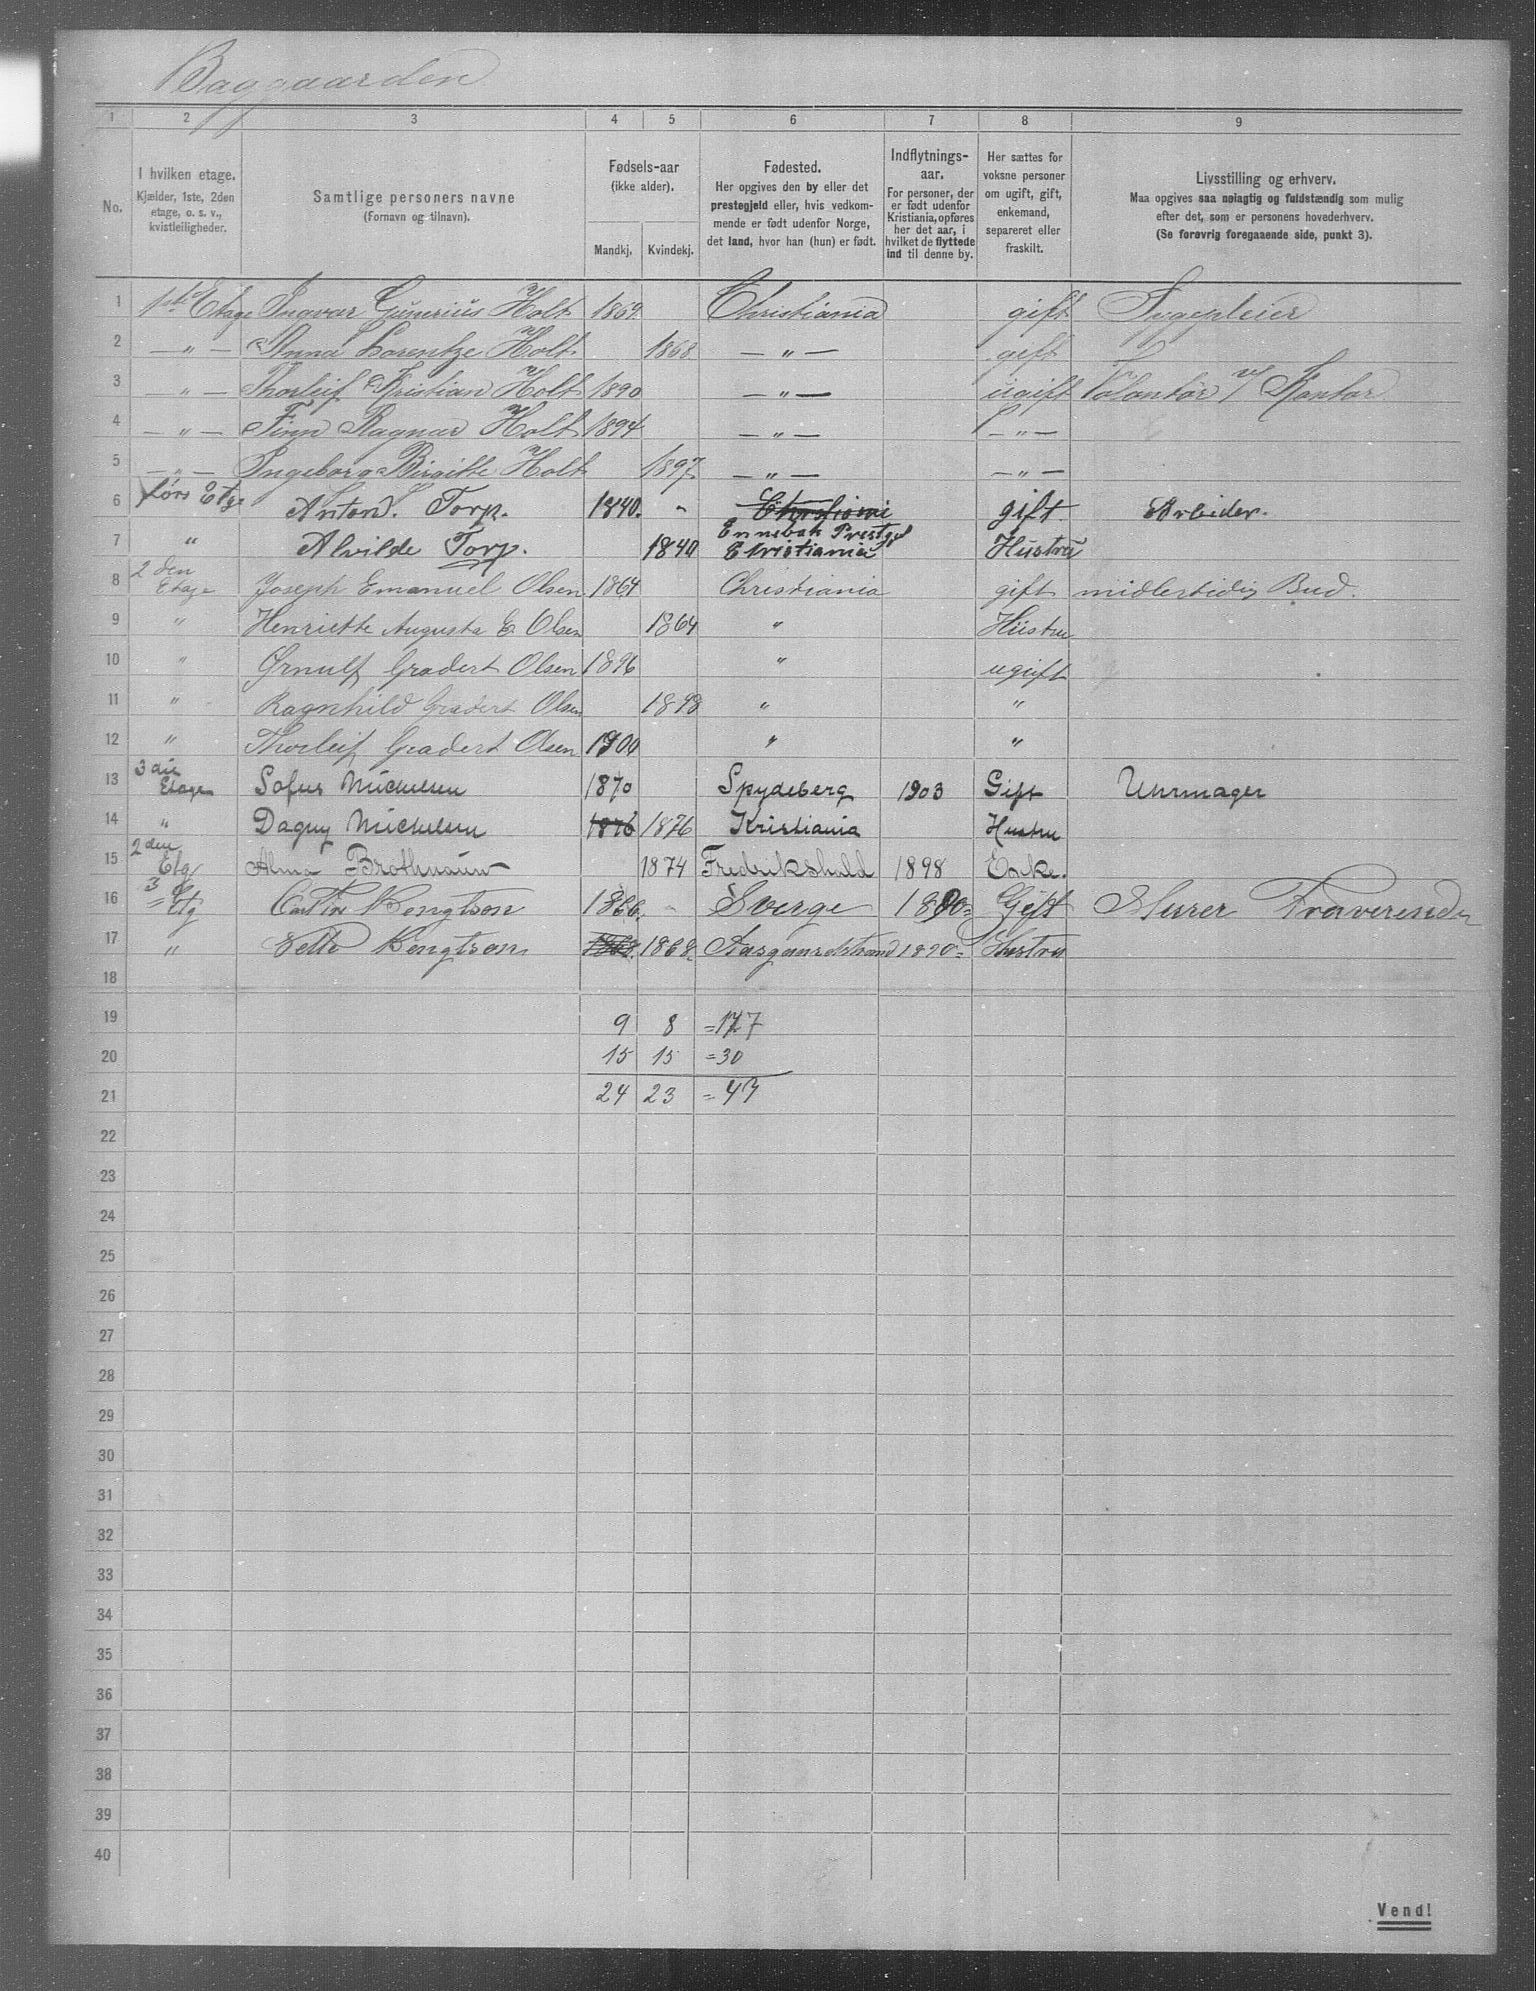 Baggaarden
1 2 3 4 5 6 7 8 9
No.
I hvilken etage.
Kjælder, 1ste, 2den
etage, o. s. v.,
kvistleiligheder.
Samtlige personers navne
(Fornavn og tilnavn).
Fødsels-aar
(ikke alder).
Mandkj. Kvindekj.
Fødested.
Her opgives den by eller det
prestegjeld eller, hvis vedkom-
mende er født udenfor Norge,
det land, hvor han (hun) er født.
Indflytnings-
aar.
For personer, der
er født udenfor
Kristiania, opføres
her det aar, i
hvilket de flyttede
ind til denne by.
Her sættes for
voksne personer
om ugift, gift,
enkemand,
separeret eller
fraskilt.
Livsstilling og erhverv.
Maa opgives saa nøiagtig og fuldstændig som mulig
efter det, som er personens hovederhverv.
(Se forøvrig foregaaende side, punkt 3).
1 1ste Etage Ingvar Gunerius Holt 1869 Christiania gift Sygepleier
2 — „ — Anna Lorentze Holt 1868 — „ — gift
3 — „ — Thorleif Kristian Holt 1890 — „ — ugift Volontør v/ Kontor
4 — „ — Finn Ragnar Holt 1894 — „ — — „ —
5 — „ — Ingeborg Birgitte Holt 1897 — „ — — „ —
6 Etg Anton. Torp. 1840. - Christiani gift. Arbeider.
Ennebak Prestgd
7 „ Alvilde Torp. 1840 Christiania Hustru
8 2den Etage Joseph Emanuel Olsen 1864 Christiania gift midlertidig Bud.
9 „ Henriette Augusta E Olsen 1864 „ Hustru
10 „ Ørnulf Gradert Olsen 1896 „ ugift
11 „ Ragnhild Gradert Olsen 1898 „ „
12 „ Thorleif Gradert Olsen 1900 „ „
13 3die Etage Sofus Mickelsen 1870 Spydeberg 1903 Gift Uhrmager
14 „ Dagny Mickelsen 1876 1876 Kristiania Hustru
15 2den Etg Alma 1874 Fredrikshald 1898 Enke.
16 3 Etg Bengtson 1866. - Sverge 1890= Gift Murer Fraverende
17 „ Bengtson 1868. 1868. Aasgaardstrand 1890= Hustru
18
19 9 8 =17
20 15 15 =30
21 24 23 =47
22
23
24
25
26
27
28
29
30
31
32
33
34
35
36
37
38
39
40
Vend!